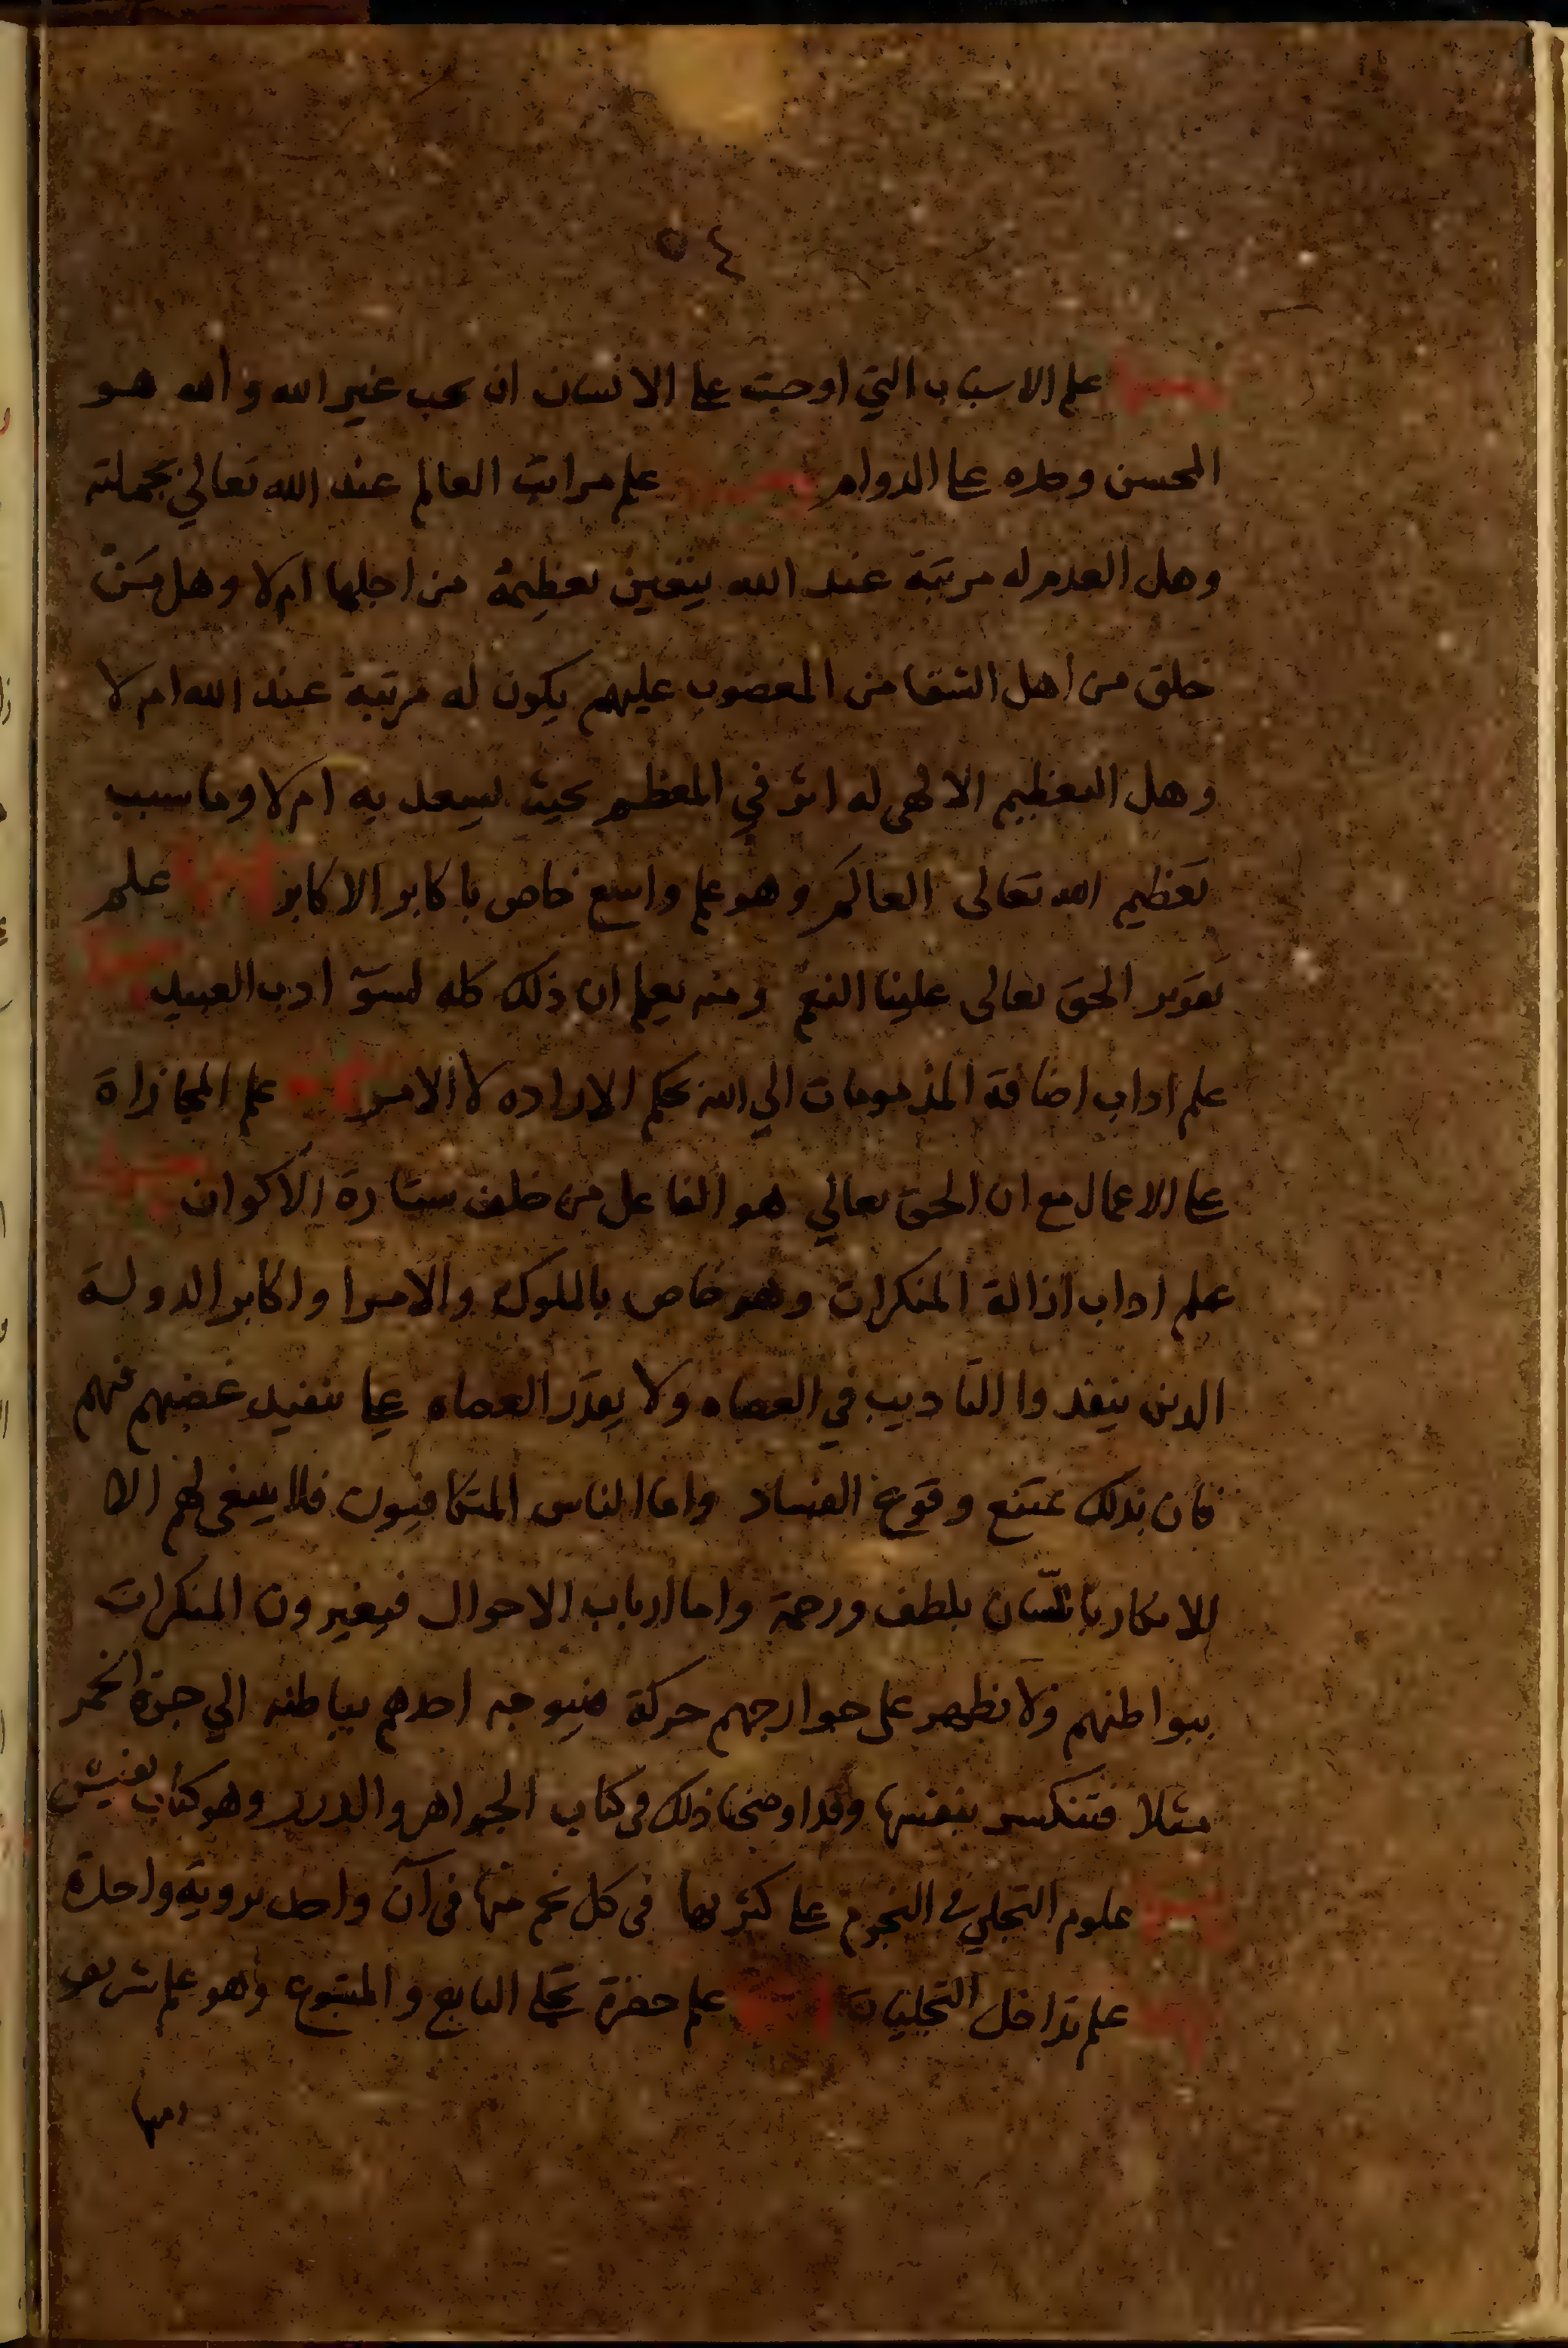 ٥٤
ومنها علم الاسباب التي اوجبت على الانسان ان يحب غير الله والله هو
المحسن وحده على الدوام ومنها علم مراتب العالم عند الله تعالي بجملته
وهل العدم له مرتبة عند الله يتعين تعظيمه من اجلها ام لا وهل من
خلق من اهل الشقا من المغضوب عليهم يكون له مرتبة عند الله ام لا
وهل التعظيم الالهي له اثر في المعظم بحيث يسعد به ام لا وما سبب
تعظيم الله تعالى العالم وهو علم واسع خاص باكابر الاكابر ومنها علم
الحق تعالى علينا النعم ومنه يعلم ان ذلك كله لسوء ادب العبيد ومنها
علم اداب اضافة المذمومات الي الله بحكم الاراده لا الامر ومنها علم المجازاة
على الاعمال مع ان الحق تعالي هو الفاعل من خلف ستارة الاكوان ومنها
علم اداب ازالة المنكرات وهو خاص بالملوك والامرا واكابر الدولة
الدين ينفذوا التاديب في العصاه ولا يقدر العصاه على تنفيد غضبهم فيهم
فان بذلك يمتنع وقوع الفساد واما الناس المتكافيون فلا ينبغي لهم الا
الانكار باللسان بلطف ورحمة واما ارباب الاحوال فيغيرون المنكرات
ببواطنهم ولا تظهر على جوارحهم حركة فيوجه احدهم بباطنه الي جرة الخمر
مثلا فتنكسر بنفسها وقد اوضحنا ذلك في كتاب الجواهر والدرر وهو كتاب نفيس
ومنها علوم التجلي في النجوم على كثرتها في كل نجم منها في آن واحد بروية واحدة
ومنها علم تداخل التجليات ومنها علم حضرة تجلي التابع والمتبوع وهو علم شريف
ومنها